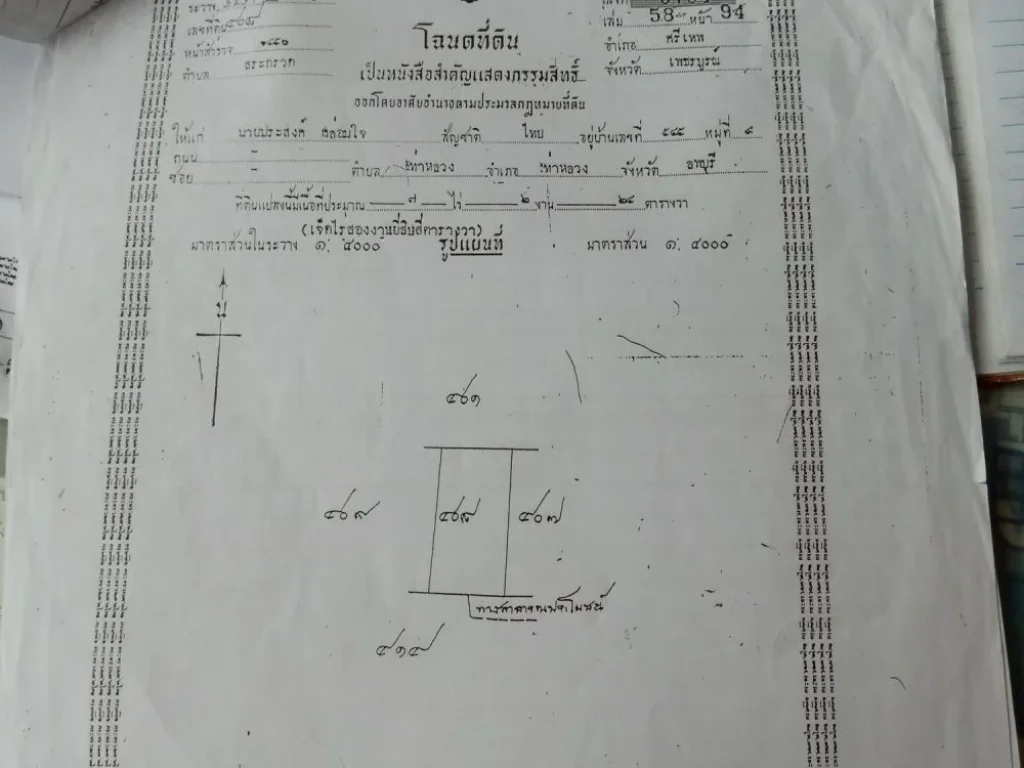 ระวาง
เลขที่ดิน ๔๖๘
หน้าสำรวจ ๑๔๕๐
ตำบล สระกรวด
เล่ม 58 หน้า 94
อำเภอ ศรีเทพ
จังหวัด เพชรบูรณ์
โฉนดที่ดิน
เป็นหนังสือสำคัญแสดงกรรมสิทธิ์
ออกโดยอาศัยอำนาจตามประมวลกฎหมายที่ดิน
ให้แก่ นายประสงค์ สล่อมใจ สัญชาติ ไทย อยู่บ้านเลขที่ ๕๔๕ หมู่ที่ ๙
ถนน –
ซอย – ตำบล ท่าหลวง อำเภอ ท่าหลวง จังหวัด ลพบุรี
ที่ดินแปลงนี้มีเนื้อที่ประมาณ ๗ ไร่ ๒ งาน ๒๔ ตารางวา
(เจ็ดไร่สองงานยี่สิบสี่ตารางวา)
มาตราส่วนในระวาง ๑: ๔๐๐๐ รูปแผนที่ มาตราส่วน ๑: ๔๐๐๐
น
๔๖๑
๔๖๙ ๔๖๘ ๔๖๗
ทางสาธารณประโยชน์
๔๑๘